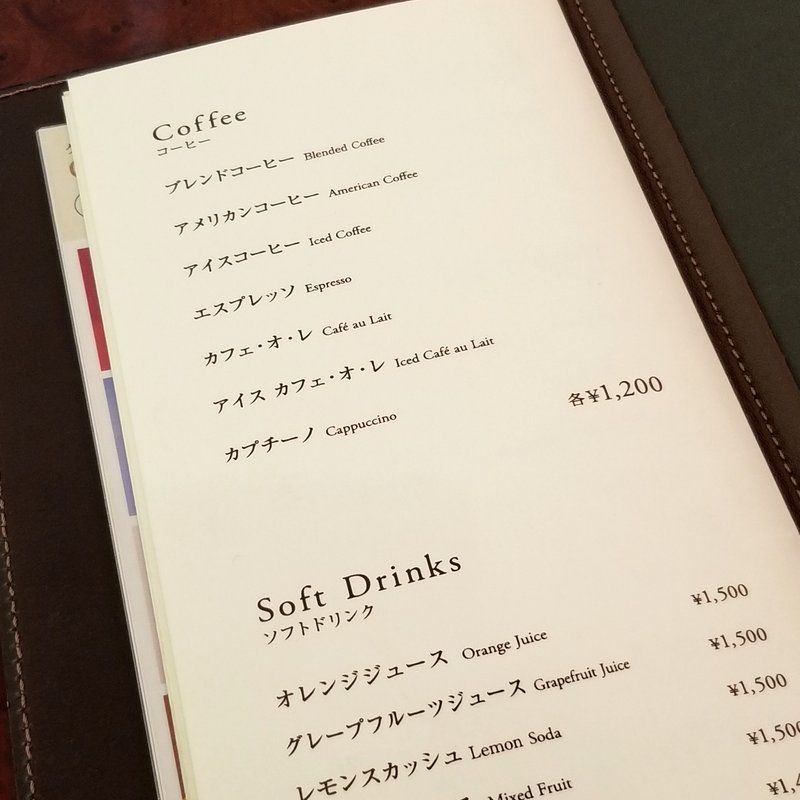 Coffee
コーヒー
ブレンドコーヒー Blended Coffee
アメリカンコーヒー American Coffee
アイスコーヒー Iced Coffee
エスプレッソ Espresso
カフェ・オ・レ Café au Lait
アイス カフェ・オ・レ Iced Café au Lait
カプチーノ Cappuccino 各¥1,200
Soft Drinks
ソフトドリンク
オレンジジュース Orange Juice ¥1,500
グレープフルーツジュース Grapefruit Juice ¥1,500
レモンスカッシュ Lemon Soda ¥1,500
Mixed Fruit ¥1,500